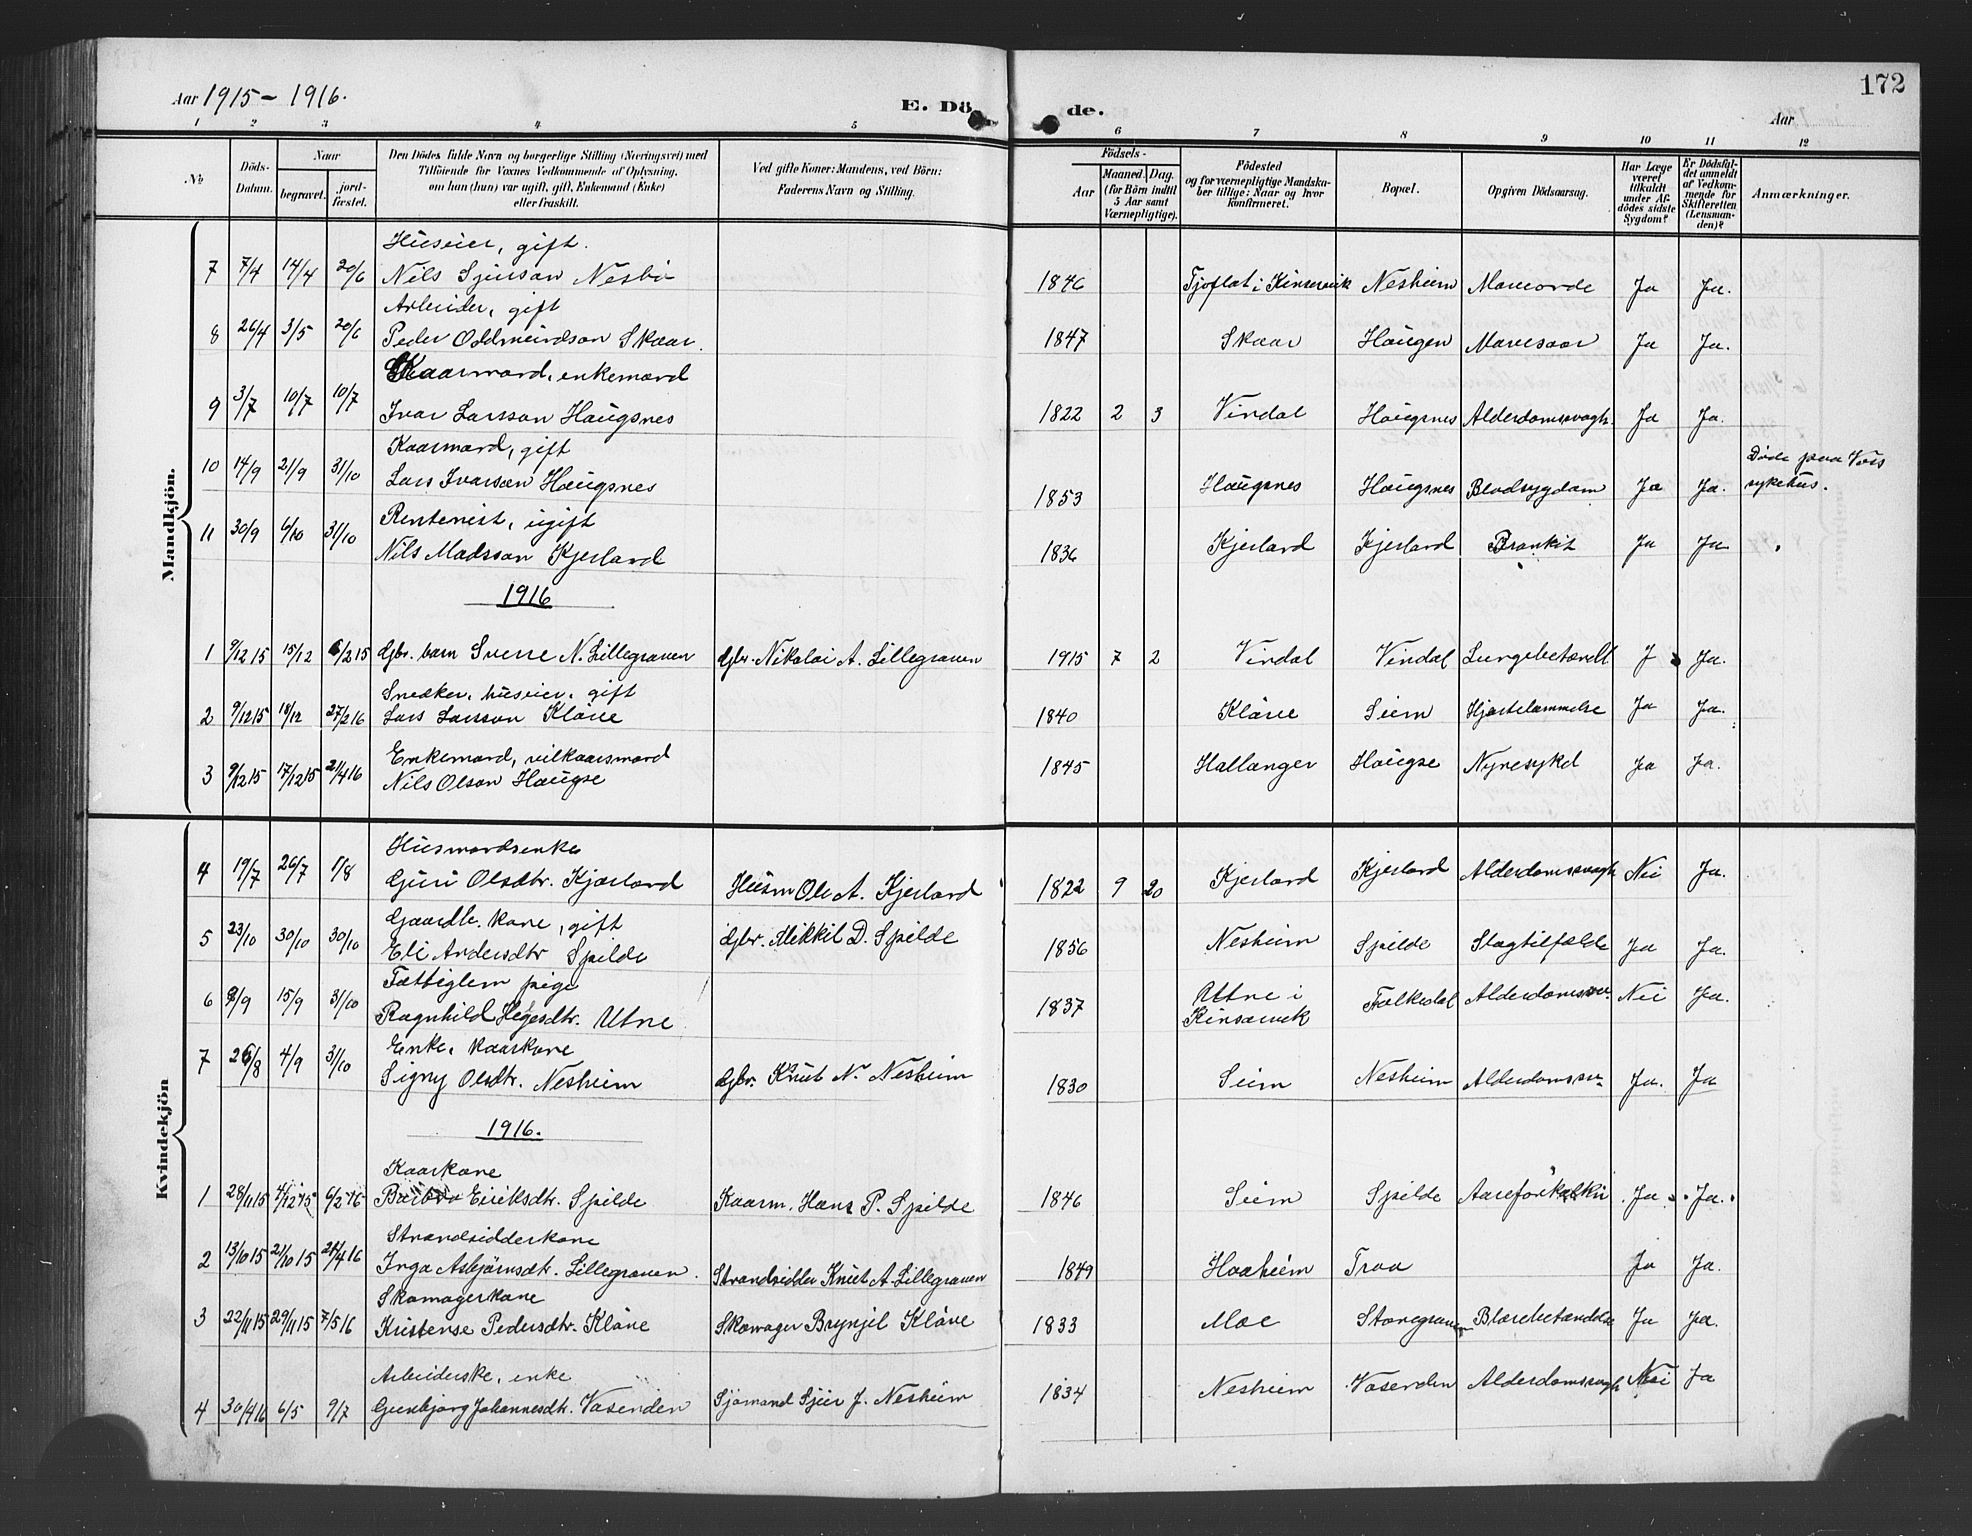 Aar 1915 - 1916. E. Dö de. Aar 172
1 2 3 4 5 6 7 8 9 10 11 12
No
Döds-Datum.
Naar
begravet.
jord-fæstet.
Den Dödes fulde Navn og borgerlige Stilling (Næringsvei) med
Tilföiende för Voxnes Vedkommende af Oplysning,
om han (hun) var ugift, gift, Enkemand (Enke)
eller fraskilt.
Ved gifte Koner: Mandens, ved Börn:
Faderens Navn og Stilling.
Födsels-
Aar
Maaned. Dag.
(for Børn indtil
5 Aar samt
Værnepligtige).
Födested
og for værnepligtige Mandska-
ber tillige: Naar og hvor
konfirmeret.
Bopæl.
Opgiven Dödsaarsag.
Har Læge
været
tilkaldt
under Af-
dödes sidste
Sygdom?
Er Dödsfal-
det anmeldt
af Vedkom-
mende for
Skifteretten
(Lensman-
den)?
Anmærkninger.
Mandkjön.
Huseier, gift.
7 7/4 14/4 20/6 Nils Sjursen Nesbö 1846 Tjoflot i Kinservik Nesheim Ja Ja.
Arbeider, gift
8 26/4 3/5 20/6 Peder Oddmundson Skaar. 1847 Skaar Haugen Mavesaar Ja Ja.
Kaarmand, enkemand
9 3/7 10/7 10/7 Ivar Larsson Haugsnes 1822 2 3 Vindal Haugsnes Alderdomssvagh. Ja Ja.
Kaarmand, gift
10 14/9 21/9 31/10 Lars Ivarsen Haugsnes 1853 Haugsnes Haugsnes Blodsygdom Ja Ja. Döde paa Voss
sykehus.
Rentenist, ugift
11 30/9 6/10 31/10 Nils Madsson Kjerland 1836 Kjerland Kjerland Bronkit Ja Ja
1916
1 9/12 15 15/12 6/2 15 Gbr. barn Sverre N. Lillegraven Gbr. Nikolai A. Lillegraven 1915 7 2 Vindal Vindal Lungebetændt J Ja.
Snedker, huseier, gift
2 9/12 15 18/12 27/2 16 Lars Larsson Kläve 1840 Kläve Seim Hjertelammelse Ja Ja.
Enkemand, vilkaarsmand
3 9/12 15 17/12 15 24/4 16 Nils Olson Haugse 1845 Hallanger Haugse Nyresykd Ja Ja.
Kvindekjön
Husmandsenke
4 19/7 26/7 1/8 Guri Olsdtr. Kjærland Husm Ole A. Kjerland 1822 9 20 Kjerland Kjerland Alderdomssvagh Nei Ja.
Gaardbr. kone, gift
5 23/10 30/10 30/10 Eli Andersdtr Spilde Gbr. Mikkil D. Spilde 1856 Nesheim Spilde Slagtilfælde Ja Ja.
Fattiglem pige
6 9/9 15/9 31/10 Ragnhild Hegesdtr. Utne 1837 Utne i
Kinsarvik Folkedal Alderdomssv. Nei Ja.
Enke, kaarkone
7 26/8 4/9 31/10 Signy Olsdtr. Nesheim Gbr. Knut N. Nesheim 1830 Seim Nesheim Alderdomssv. Ja. Ja
1916.
Kaarkone
1 28/11 15 4/12 15 6/2 16 Barbro Eiriksdtr. Spilde Kaarm. Hans P. Spilde 1846 Seim Spilde Aareforkalkn Ja Ja.
Strandsidderkone
2 13/10 15 21/10 15 24/4 16 Inga Asbjörnsdtr. Lillegraven. Strandsidder Knut A. Lillegraven 1849 Haaheim Traa Ja Ja.
Skomagerkone
3 22/11 15 29/11 15 7/5 16 Kristense Pedersdtr. Kläve Skomager Brynjel Kläve 1833 Moe Storegraven Blærebetændelse Ja Ja.
Arbeiderske, enke
4 30/4 16 6/5 9/7 Gunbjörg Johannesdtr. Vasenden Sjömand Sjur J. Nesheim 1834 Nesheim Vasenden Alderdomssvagh Nei Ja